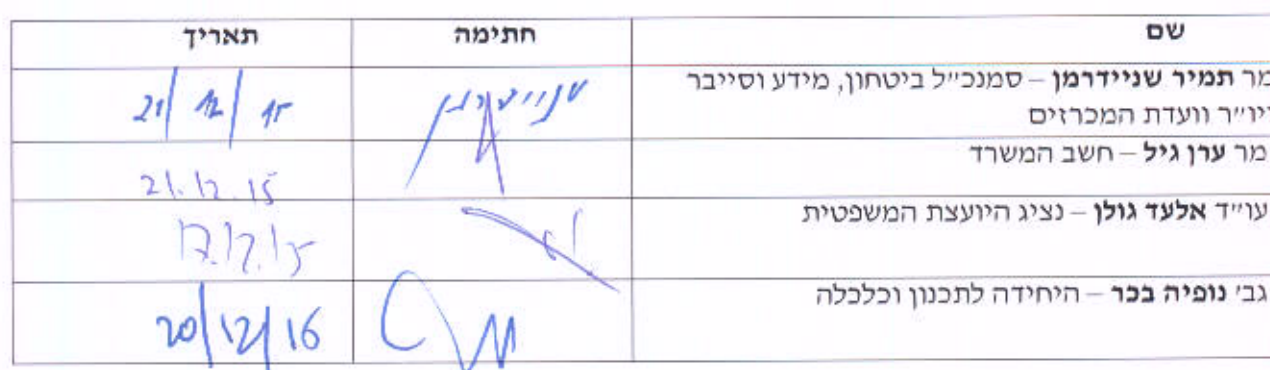 שם חתימה תאריך
מר תמיר שניידרמן – סמנכ״ל ביטחון, מידע וסייבר שניידרמן 21/12/15
ויו״ר וועדת המכרזים
מר ערן גיל – חשב המשרד 21.12.15
עו״ד אלעד גולן – נציג היועצת המשפטית 17.12.15
גב׳ נופיה בכר – היחידה לתכנון וכלכלה 20/12/16